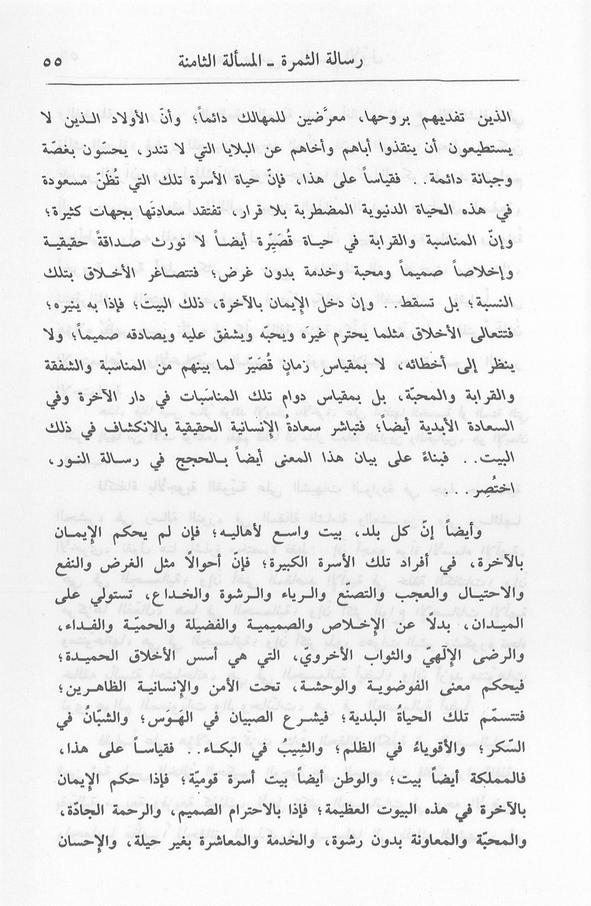 رسالة الثمرة ـ المسألة الثامنة ٥٥
الذين تفديهم بروحها، معرَّضين للمهالك دائماً؛ وأنّ الأولاد الـذين لا
يستطيعون أن ينقذوا أباهم وأخاهم عن البلايا التي لا تندر، يحسّون بغصّة
وجبانة دائمة.. فقياساً على هذا، فإنّ حياة الأسرة تلك التي تُظَنّ مسعودة
في هذه الحياة الدنيوية المضطربة بلا قرار، تفتقد سعادتَها بجهات كثيرة؛
وإنّ المناسبة والقرابة في حياة قُصَيِّرة أيضاً لا تورث صداقةً حقيقية
وإخلاصاً صميماً ومحبة وخدمة بدون غرض؛ فتتصاغر الأخلاق بتلك
النسبة؛ بل تسقط.. وإن دخل الإيمان بالآخرة، ذلك البيتَ؛ فإذا به ينيره؛
فتتعالى الأخلاق مثلما يحترم غيرَه ويحبّه ويشفق عليه ويصادقه صميماً؛ ولا
ينظر إلى أخطائه، لا بمقياس زمانٍ قُصَيَر لما بينهم من المناسبة والشفقة
والقرابة والمحبّة، بل بمقياس دوام تلك المناسَبات في دار الآخرة وفي
السعادة الأبدية أيضاً؛ فتباشر سعادةُ الإنسانية الحقيقية بالانكشاف في ذلك
البيت.. فبناءً على بيان هذا المعنى أيضاً بـالحجج في رسـالة النـور،
اختُصِر...
وأيضاً إنّ كل بلد، بيت واسع لأهاليـه؛ فإن لم يحكم الإيمـان
بالآخرة، في أفراد تلك الأسرة الكبيرة؛ فإنّ أحوالًا مثل الغرض والنفع
والاحتيال والعجب والتصنّع والرياء والرشوة والخداع، تستولي على
الميدان، بدلًا عن الإخلاص والصميمية والفضيلة والحميّة والفداء،
والرضى الإلهيّ والثواب الأخرويّ، التي هي أسس الأخلاق الحميدة؛
فيحكم معنى الفوضويـة والوحشة، تحت الأمن والإنسانية الظاهرين؛
فتتسمّم تلك الحياةُ البلدية؛ فيشرع الصبيان في الهَوَس؛ والشبّانُ في
السّكر؛ والأقوياءُ في الظلم؛ والشِيبُ في البكاء.. فقياساً على هذا،
فالمملكة أيضاً بيت؛ والوطن أيضاً بيت أسرة قوميّة؛ فإذا حكم الإيمان
بالآخرة في هذه البيوت العظيمة؛ فإذا بالاحترام الصميم، والرحمة الجادّة،
والمحبّة والمعاونة بدون رشوة، والخدمة والمعاشرة بغير حيلة، والإحسان